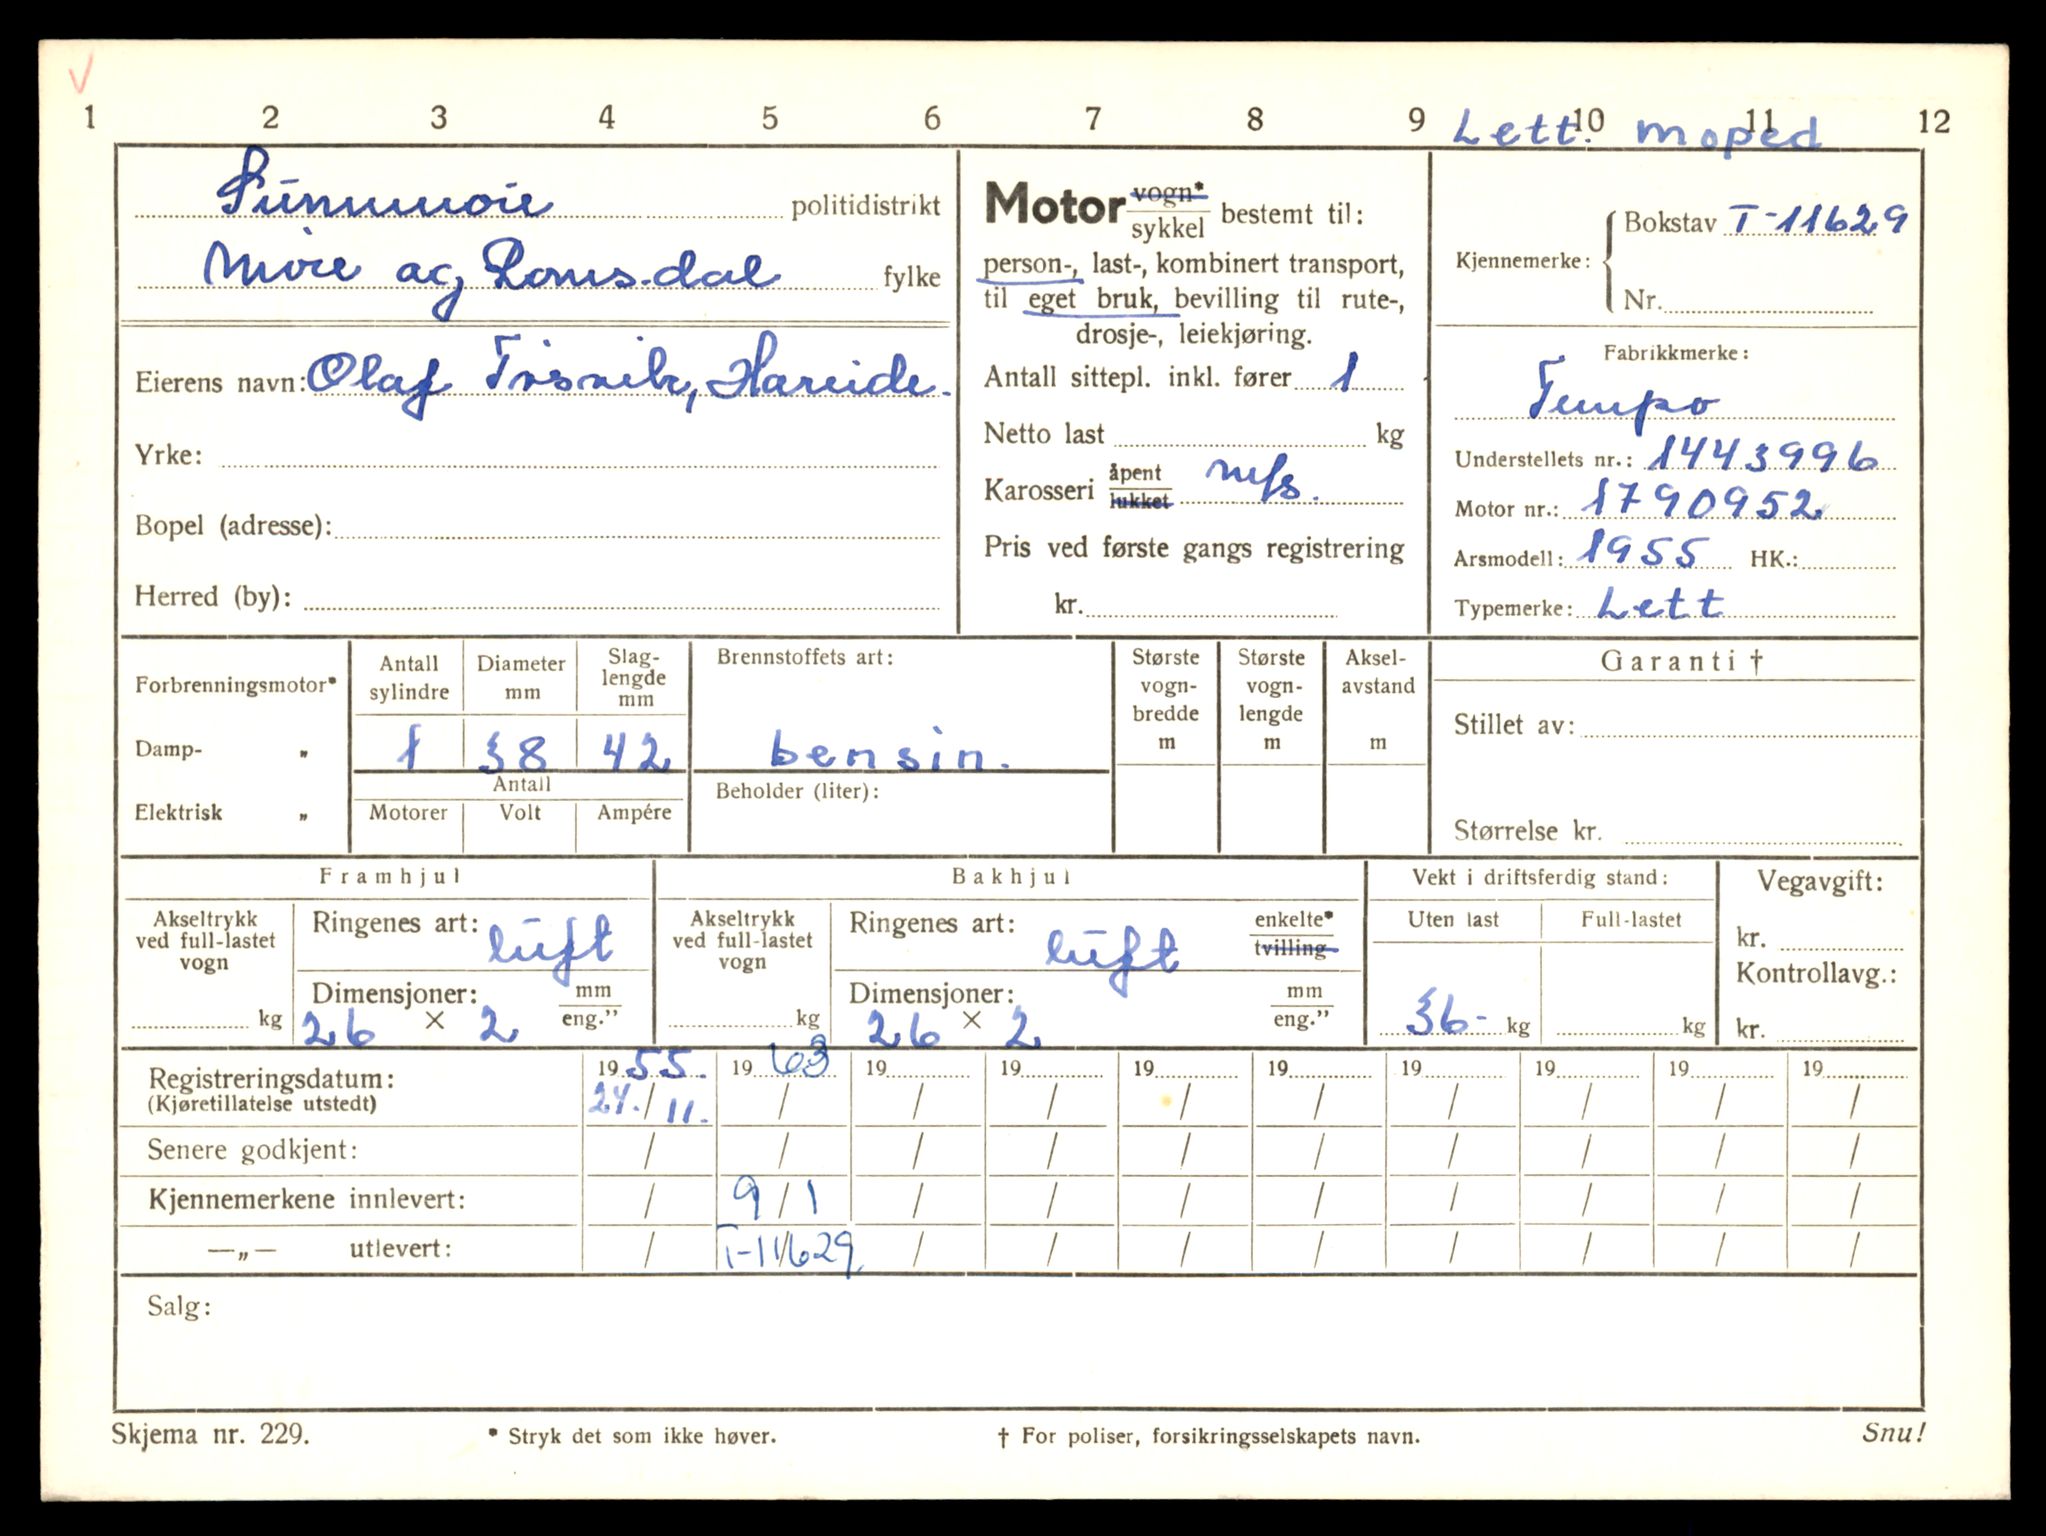 V
1 2 3 4 5 6 7 8 9 10 11 12
Lett. moped
Sunnmøre politidistrikt
Møre og Romsdal fylke
Eierens navn: Olaf Hareide.
Yrke:
Bopel (adresse):
Herred (by):
Motor vogn*
sykkel bestemt til:
person-, last-, kombinert transport,
til eget bruk, bevilling til rute-,
drosje-, leiekjøring.
Antall sittepl. inkl. fører 1
Netto last kg
Karosseri åpent
lukket mfs.
Pris ved første gangs registrering
kr.
Kjennemerke: Bokstav T-11629
Nr.
Fabrikkmerke:
Tempo
Understellets nr.: 1443996
Motor nr.: 1790952
Arsmodell: 1955 HK.:
Typemerke: Lett
Forbrenningsmotor*
Damp- „
Elektrisk „
Antall sylindre
Diameter mm
Slag-
lengde
mm
1 38 42
Antall
Motorer Volt Ampére
Brennstoffets art:
bensin.
Beholder (liter):
Største
vogn-
bredde
m
Største
vogn-
lengde
m
Aksel-
avstand
m
Garanti †
Stillet av:
Størrelse kr.
Framhjul
Akseltrykk
ved full-lastet
vogn
kg
Ringenes art: luft
Dimensjoner: mm
eng."
26 × 2
Bakhjul
Akseltrykk
ved full-lastet
vogn
kg
Ringenes art: luft enkelte*
tvilling
Dimensjoner: mm
eng."
26 × 2
Vekt i driftsferdig stand:
Uten last Full-lastet
36- kg kg
Vegavgift:
kr.
Kontrollavg.:
kr.
Registreringsdatum: 1955. 1963 19 19 19 19 19 19 19 19
(Kjøretillatelse utstedt) 24./11. / / / / / / / / /
Senere godkjent: / / / / / / / / / /
Kjennemerkene innlevert: / 9/1 / / / / / / / /
—„— utlevert: / T-11629 / / / / / / / /
Salg:
Skjema nr. 229. * Stryk det som ikke høver. † For poliser, forsikringsselskapets navn. Snu!